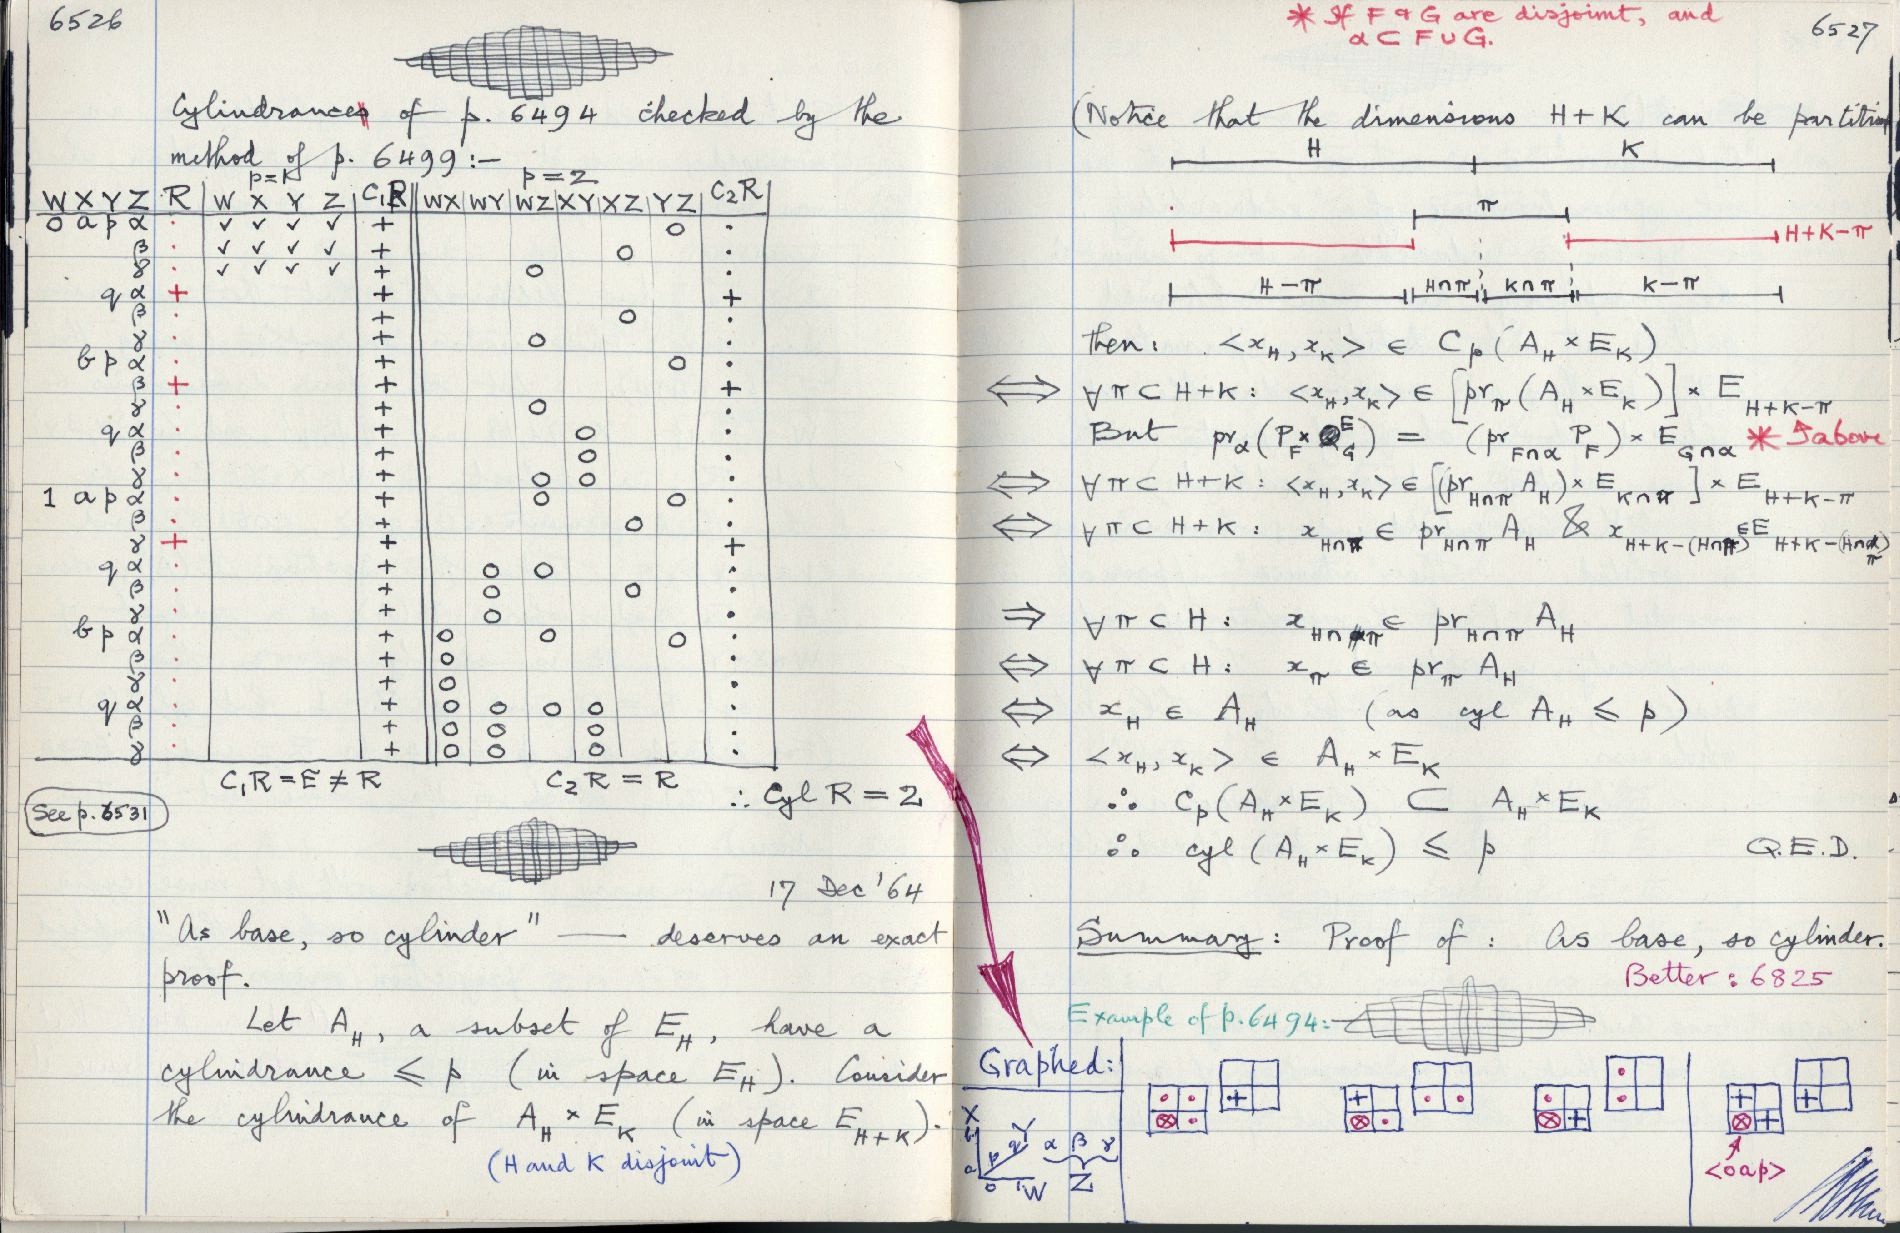 6526
Cylindrance of p. 6494 checked by the
method of p. 6499:—
p=1 p=2
W X Y Z R W X Y Z C₁R WX WY WZ XY XZ YZ C₂R
0 a p α · ✓ ✓ ✓ ✓ + O ·
β · ✓ ✓ ✓ ✓ + O ·
γ · ✓ ✓ ✓ ✓ + O ·
q α + + +
β · + O ·
γ · + O ·
b p α · + O ·
β + + +
γ · + O ·
q α · + O ·
β · + O ·
γ · + O O ·
1 a p α · + O O ·
β · + O ·
γ + + +
q α · + O O ·
β · + O O ·
γ · + O ·
b p α · + O O O ·
β · + O ·
γ · + O ·
q α · + O O O O ·
β · + O O O ·
γ · + O O O ·
C₁R = E ≠ R C₂R = R
∴ Cyl R = 2
See p. 6531
17 Dec '64
"As base, so cylinder" — deserves an exact
proof.
Let A_H, a subset of E_H, have a
cylindrance ≤ p (in space E_H). Consider
the cylindrance of A_H × E_K (in space E_H+K).
(H and K disjoint)
* If F & G are disjoint, and
α ⊂ F ∪ G.
6527
(Notice that the dimensions H+K can be partition
H K
π
H+K−π
H−π H∩π K∩π K−π
then: <x_H, x_K> ∈ C_p(A_H × E_K)
⇔ ∀π ⊂ H+K: <x_H, x_K> ∈ [pr_π(A_H × E_K)] × E_H+K−π
But pr_α(P_F × E_G) = (pr_F∩α P_F) × E_G∩α * ↑above
⇔ ∀π ⊂ H+K: <x_H, x_K> ∈ [(pr_H∩π A_H) × E_K∩π] × E_H+K−π
⇔ ∀π ⊂ H+K: x_H∩π ∈ pr_H∩π A_H & x_H+K−(H∩π) ∈ E_H+K−(H∩π)
⇒ ∀π ⊂ H: x_H∩π ∈ pr_H∩π A_H
⇔ ∀π ⊂ H: x_π ∈ pr_π A_H
⇔ x_H ∈ A_H (as cyl A_H ≤ p)
⇔ <x_H, x_K> ∈ A_H × E_K
∴ C_p(A_H × E_K) ⊂ A_H × E_K
∴ cyl(A_H × E_K) ≤ p Q.E.D.
Summary: Proof of: As base, so cylinder.
Better: 6825
Example of p. 6494:—
Graphed:
X
b Y
a p q α β γ
0 1 W Z
<oap>